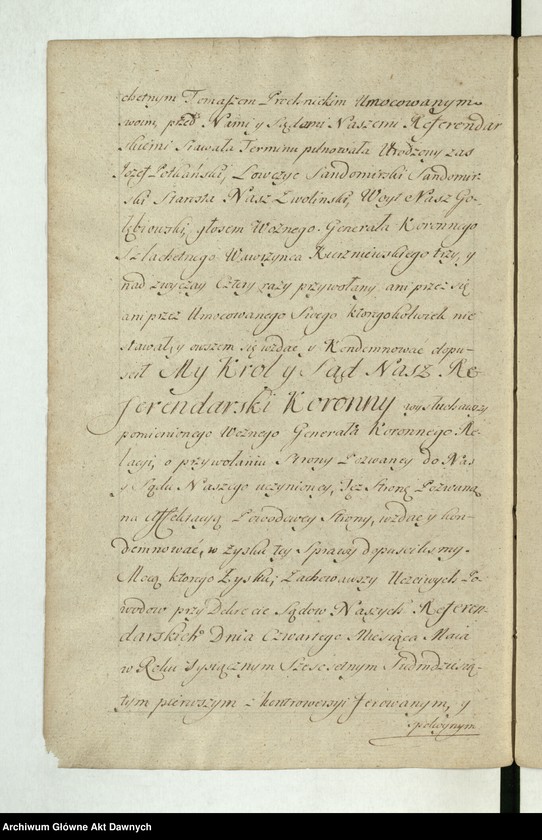 chetnym Tomaszem Prochnickim Umocowanym
swoim, przed Nami y Sądami Naszemi Referendar
skiemi Stawała Terminu pilnowała Urodzony zas
Jozef Potkański, Łowczyc Sandomirski Sandomir-
ski Starosta Nasz Zwolinski, Woyt Nasz Go-
łębiowski, głosem Woznego Generała Koronnego
Szlachetnego Wawrzynca Kuzmienskiego trzy, y
nad zwyczay Cztery razy przywołany, ani przez się
ani przez Umocowanego Swego ktoregokolwiek nie
stawał, y owszem się wzdać y Kondemnować dopu-
scił My Krol y Sąd Nasz Re-
ferendarski Koronny wysłuchawszy
pomienionego Woznego Generała Koronnego Re-
lacyi, o przywołaniu Strony Pozwaney do Nas
y Sądu Naszego uczynioney, Też Stronę Pozwaną
na affektacyą Powodowey Strony, wzdać y kon-
demnować, w zysku tey Sprawy dopuscilismy.
Mocą ktorego Zysku, Zachowawszy Uczciwych Po-
wodow przy Dekrecie Sądow Naszych Referen-
darskich Dnia Czwartego Miesiąca Maia
w Roku tysiącznym Szescsetnym Siedmdziesią-
tym pierwszym z kontrowersyi ferowanym, y
spolwynym
Archiwum Główne Akt Dawnych